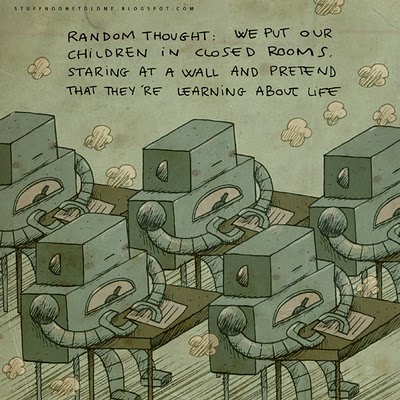 STUFFNOONETOLDME.BLOGSPOT.COM
RANDOM THOUGHT: WE PUT OUR
CHILDREN IN CLOSED ROOMS,
STARING AT A WALL AND PRETEND
THAT THEY'RE LEARNING ABOUT LIFE